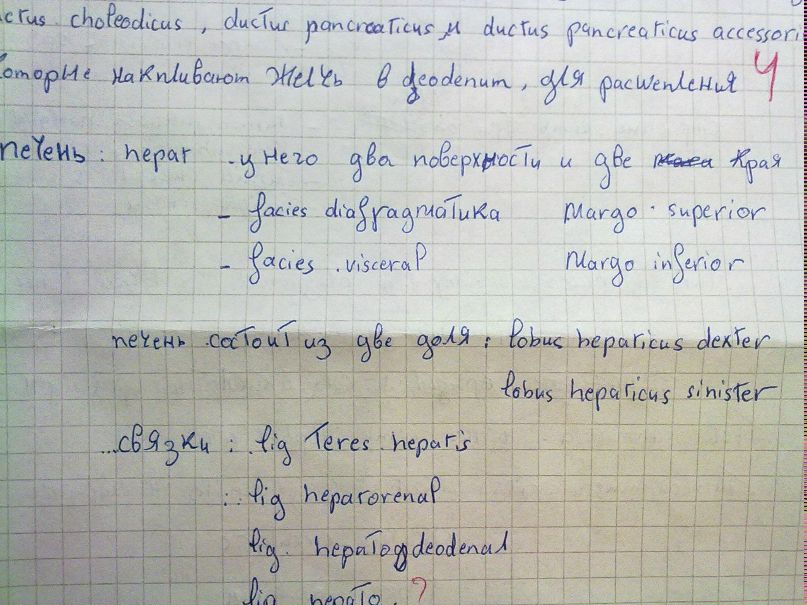 ctus choleodicus, ductus pancreaticus, и ductus pancreaticus accessori
оторые накпливают желчь в deodenum, для расщепления 4
печень: hepar - у него два поверхности и две края
- facies diafragmатика Margo superior
- facies visceral Margo inferior
печень состоит из две доля: lobus hepaticus dexter
lobus hepaticus sinister
...связки: lig Teres heparis
: lig heparorenal
lig. hepatoдdeodenal
lig hepato. ?